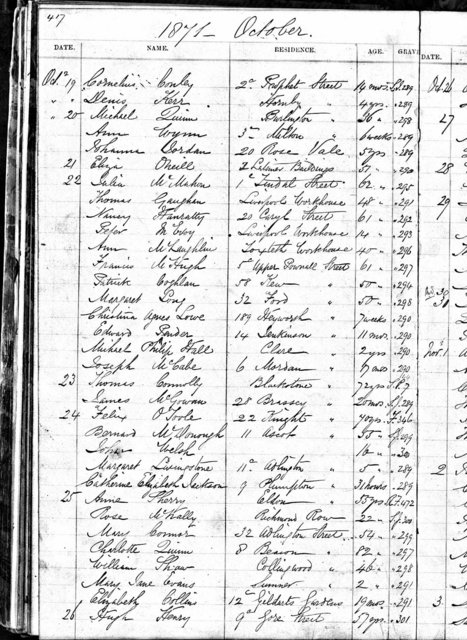 47
1871 - October.
DATE. NAME. RESIDENCE. AGE. GRAVE DATE.
Oct 19 Cornelius Conley Prophet Street 14 mos. 289
" " Denis Kerr Hornby " 4 yrs. " 289
" 20 Michael Quinn Burlington " 36 " " 258
Ann Wynn Milton " 6 weeks " 289
Johanna Jordan 20 Rose Vale 5 yrs " 289
21 Eliza O'neill 2 Buildings 51 " " 290
22 McMahon 1 Tindal Street 62 " " 295
Thomas Gaughan Liverpool Workhouse 48 " " 291
Nancy Hanratty 20 Caryl Street 61 " " 292
Peter McEvoy Liverpool Workhouse 14 " " 293
Ann McLaughlin Toxteth Workhouse 40 " " 296
Francis McHugh 5 Upper Pownell Street 61 " " 297
Patrick Coghlan 58 Kew " 50 " " 294
Margaret Long 32 Ford " 50 " " 298
Christina Agnes Lowe 189 Heyworth " 7 weeks " 290
Edward Ponder 14 Jenkinson " 11 mos. " 290
Michael Philip Hall Clare " 2 yrs " 290
Joseph McCabe 6 Mordan " 17 mos " 290
23 Thomas Connolly Blackstone " 72 yrs
James McGowan 28 Brassey " 20 mos 289
24 Felix O'Toole 22 Knight " 70 yrs 346
Bernard McDonough 11 Ascot " 299
John Welsh " 16 "
Margaret Livingstone 11 Arlington " 5 " " 289
Catherine Elizabeth Jackson 9 Plumpton " 31 hours " 289
25 Anne Sherry Eldon " 472
Rose McNally Richmond Row 22 "
Mary Connor 32 Arlington Street 54 " " 299
Charlotte Quinn 8 Beacon " 82 " " 297
William Shaw Collingwood " 46 " " 298
Mary Jane Evans Sumner " 2 " " 291
Elizabeth Collins 12 Gilberts Gardens 19 mos " 291
26 Hugh Henry 9 Gore Street 57 yrs " 301
Oct 26
27
28
29
30
31
Nov. 1
2
3